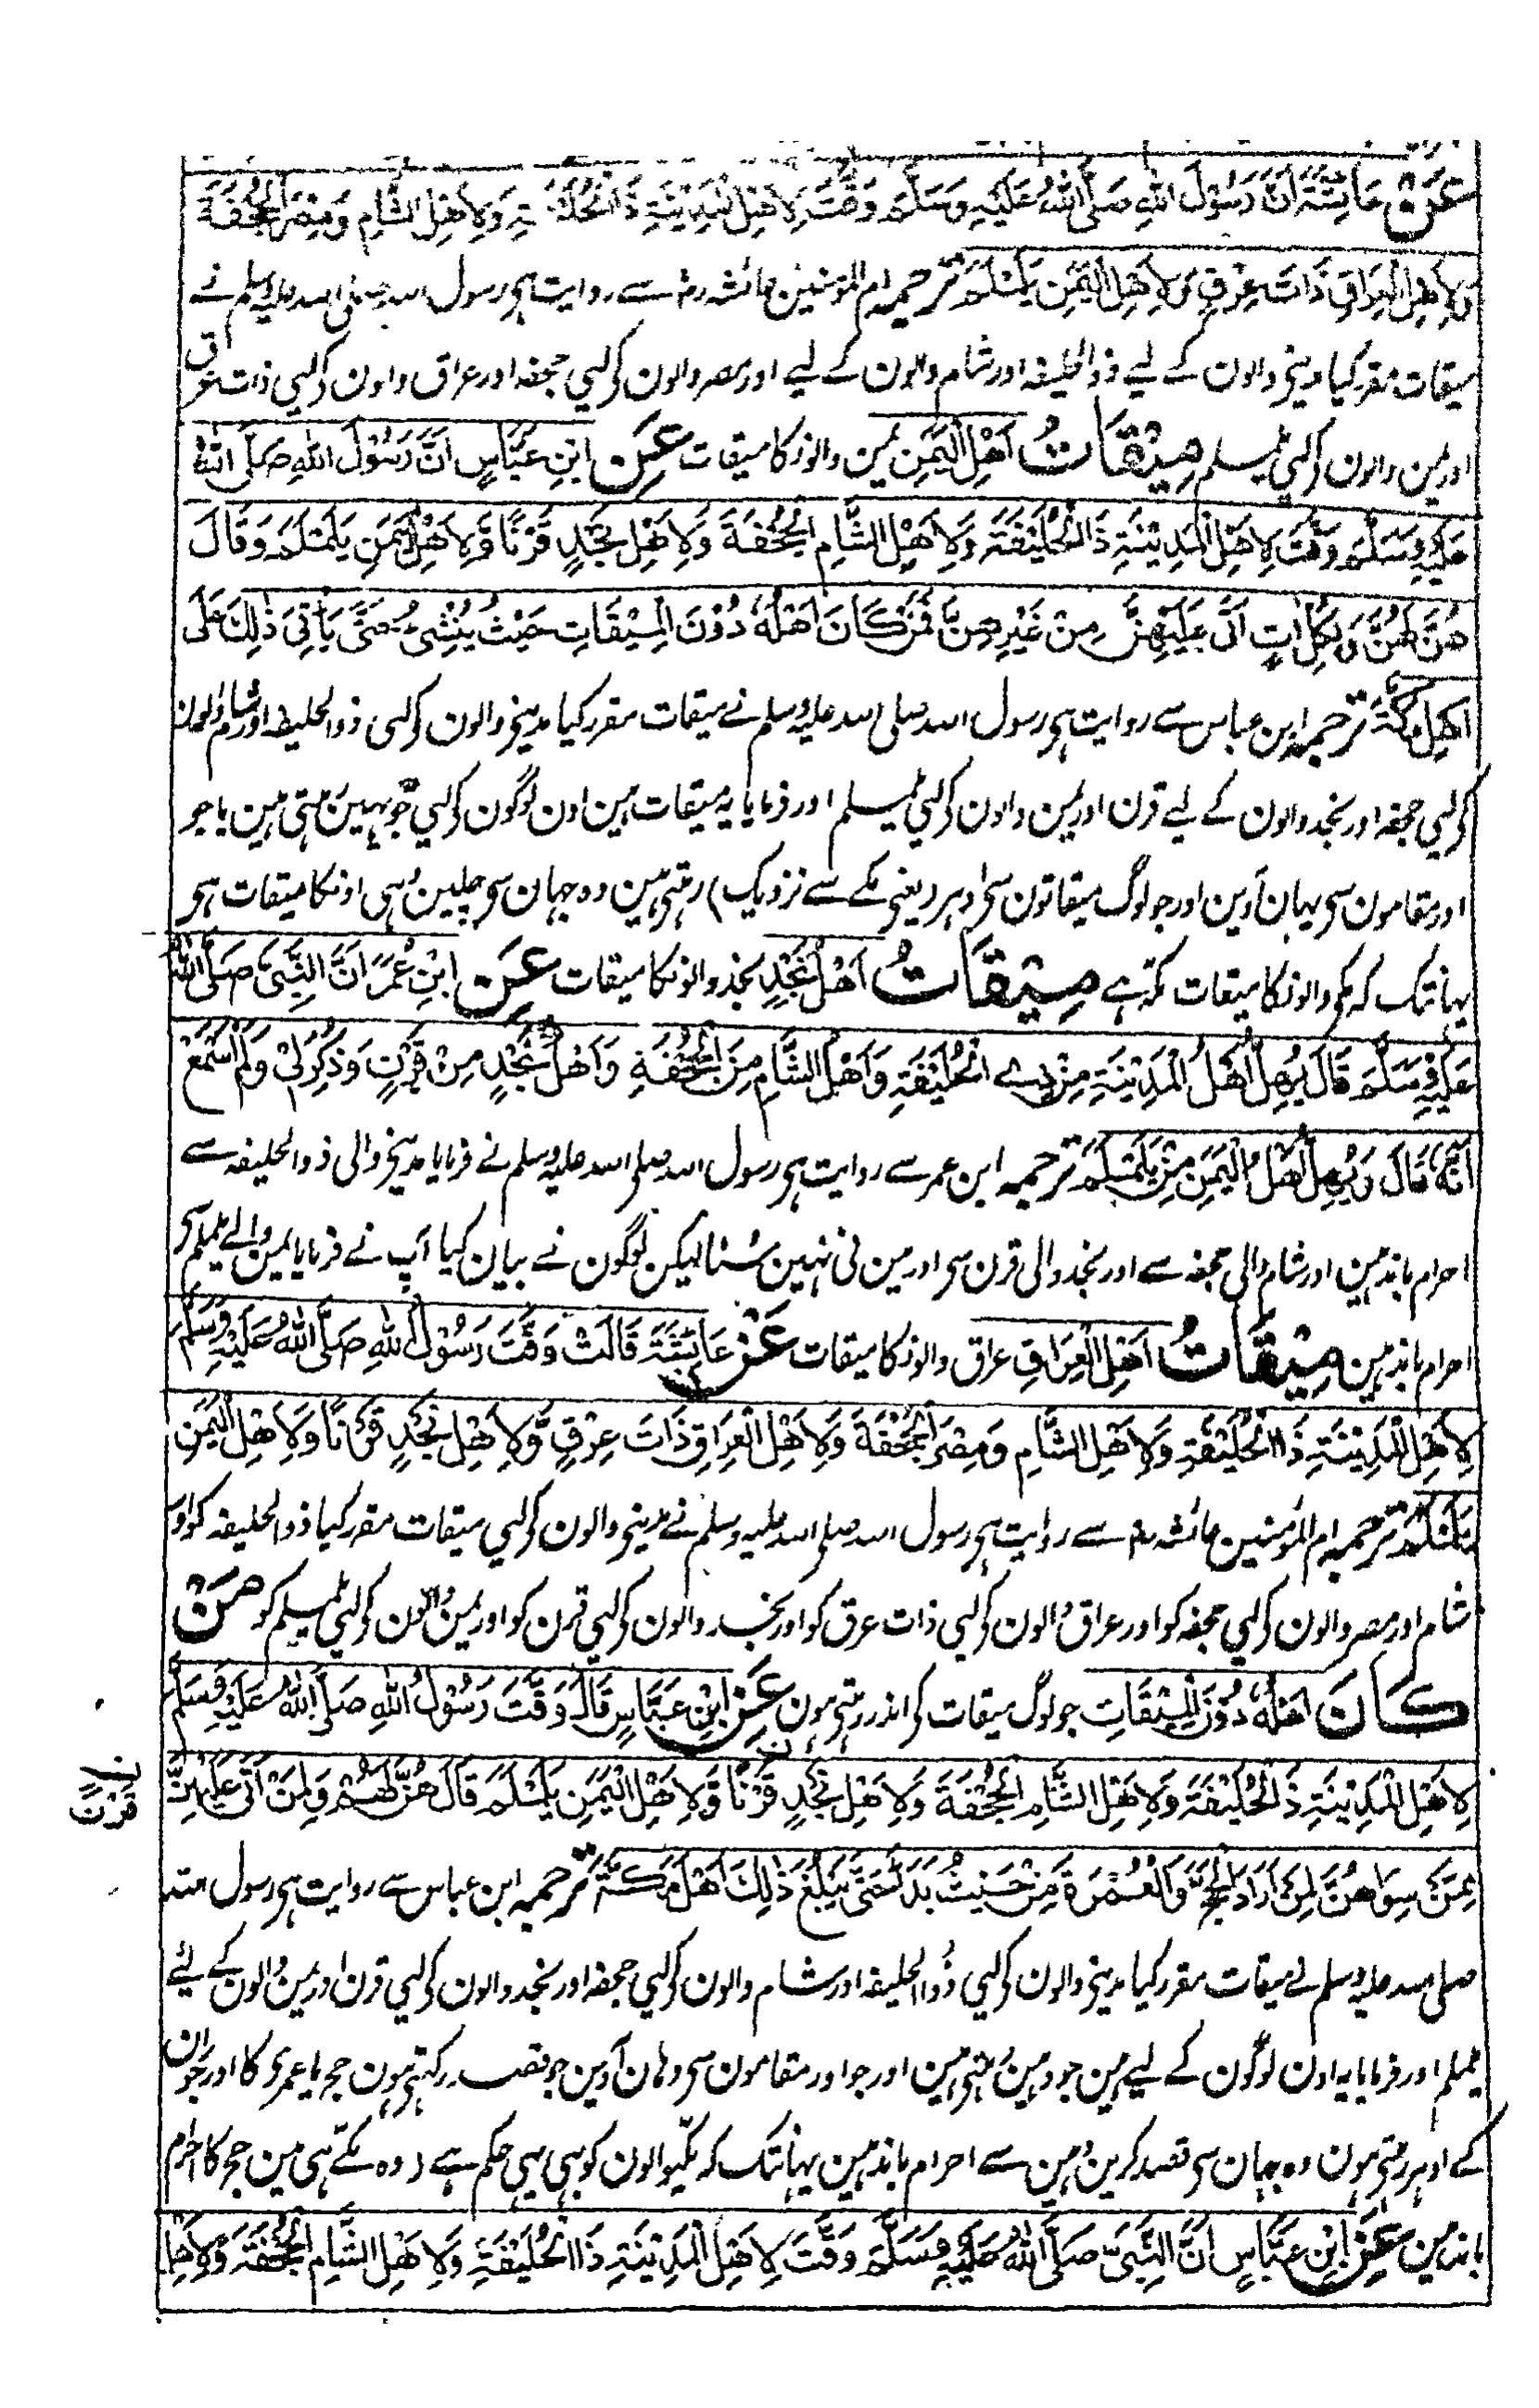 عَنْ عَائِشَةَ اَنَّ رَسُوْلَ اللهِ صَلَّى اللهُ عَلَيْهِ وَسَلَّمَ وَقَّتَ لِاَهْلِ الْمَدِيْنَةِ ذَا الْحُلَيْفَةِ وَلِاَهْلِ الشَّامِ وَمِصْرَ الْجُحْفَةَ
وَلِاَهْلِ الْعِرَاقِ ذَاتَ عِرْقٍ وَلِاَهْلِ الْيَمَنِ يَلَمْلَمَ ترجمہ ام المؤمنین عائشہ رضہ سے روایت ہی رسول اللہ صلی اللہ علیہ وسلم نے
میقات مقرر کیا مدینی والون کے لیے ذوالحلیفہ اور شام والون کے لیے اور مصر والون کولیی جحفہ اور عراق والون کولیی ذات عرق
اور یمن والون کولیی یلملم مِيْقَاتُ اَهْلِ الْيَمَنِ یمن والونکا میقات عَنِ ابْنِ عَبَّاسٍ اَنَّ رَسُوْلَ اللهِ صَلَّى اللهُ
عَلَيْهِ وَسَلَّمَ وَقَّتَ لِاَهْلِ الْمَدِيْنَةِ ذَا الْحُلَيْفَةِ وَلِاَهْلِ الشَّامِ الْجُحْفَةَ وَلِاَهْلِ نَجْدٍ قَرْنًا وَّلِاَهْلِ الْيَمَنِ يَلَمْلَمَ وَقَالَ
هُنَّ لَهُنَّ وَلِكُلِّ اٰتٍ اَتٰى عَلَيْهِنَّ مِنْ غَيْرِهِنَّ فَمَنْ كَانَ اَهْلُهٗ دُوْنَ الْمِيْقَاتِ حَيْثُ يُنْشِئُ حَتّٰى يَأْتِيَ ذٰلِكَ عَلٰى
اَهْلِ مَكَّةَ ترجمہ ابن عباس سے روایت ہی رسول اللہ صلی اللہ علیہ وسلم نے میقات مقرر کیا مدینی والون کولیی ذوالحلیفہ اور شام والون
کولیی جحفہ اور نجد والون کے لیے قرن اور یمن والون کولیی یلملم اور فرمایا یہ میقات ہین اون لوگون کولیی جو یہین رہتی ہین یا جو
اور مقامون سی یہان آوین اور جو لوگ میقاتون سی اودہر (یعنی مکے سے نزدیک) رہتی ہین وہ جہان سی چلین وہی اونکا میقات ہی
یہانتک کہ مکی والونکا میقات مکہ ہے مِيْقَاتُ اَهْلِ نَجْدٍ نجد والونکا میقات عَنِ ابْنِ عُمَرَ اَنَّ النَّبِيَّ صَلَّى اللهُ
عَلَيْهِ وَسَلَّمَ قَالَ يُهِلُّ اَهْلُ الْمَدِيْنَةِ مِنْ ذِي الْحُلَيْفَةِ وَاَهْلُ الشَّامِ مِنَ الْجُحْفَةِ وَاَهْلُ نَجْدٍ مِنْ قَرْنٍ وَذُكِرَ لِيْ وَلَمْ اَسْمَعْ
اَنَّهٗ قَالَ وَيُهِلُّ اَهْلُ الْيَمَنِ مِنْ يَلَمْلَمَ ترجمہ ابن عمر سے روایت ہی رسول اللہ صلی اللہ علیہ وسلم نے فرمایا مدینی والی ذوالحلیفہ سے
احرام باندہین اور شام والی جحفہ سے اور نجد والی قرن سی اور مین نی نہین سنا لیکن لوگون نے بیان کیا آپ نے فرمایا یمن والے یلملم سی
احرام باندہین مِيْقَاتُ اَهْلِ الْعِرَاقِ عراق والونکا میقات عَنْ عَائِشَةَ قَالَتْ وَقَّتَ رَسُوْلُ اللهِ صَلَّى اللهُ عَلَيْهِ وَسَلَّمَ
لِاَهْلِ الْمَدِيْنَةِ ذَا الْحُلَيْفَةِ وَلِاَهْلِ الشَّامِ وَمِصْرَ الْجُحْفَةَ وَلِاَهْلِ الْعِرَاقِ ذَاتَ عِرْقٍ وَّلِاَهْلِ نَجْدٍ قَرْنًا وَّلِاَهْلِ الْيَمَنِ
يَلَمْلَمَ ترجمہ ام المؤمنین عائشہ رضہ سے روایت ہی رسول اللہ صلی اللہ علیہ وسلم نے مدینی والون کولیی میقات مقرر کیا ذوالحلیفہ کو اور
شام اور مصر والون کولیی جحفہ کو اور عراق والون کولیی ذات عرق کو اور نجد والون کولیی قرن کو اور یمن والون کولیی یلملم کو مَنْ
كَانَ اَهْلُهٗ دُوْنَ الْمِيْقَاتِ جو لوگ میقات کی اندر رہتی ہون عَنِ ابْنِ عَبَّاسٍ قَالَ وَقَّتَ رَسُوْلُ اللهِ صَلَّى اللهُ عَلَيْهِ وَسَلَّمَ
لِاَهْلِ الْمَدِيْنَةِ ذَا الْحُلَيْفَةِ وَلِاَهْلِ الشَّامِ الْجُحْفَةَ وَلِاَهْلِ نَجْدٍ قَرْنًا وَّلِاَهْلِ الْيَمَنِ يَلَمْلَمَ قَالَ هُنَّ لَهُمْ وَلِمَنْ اَتٰى عَلَيْهِنَّ
قَرْنَ
مِمَّنْ سِوَاهُنَّ لِمَنْ اَرَادَ الْحَجَّ وَالْعُمْرَةَ مِنْ حَيْثُ بَدَا حَتّٰى يَبْلُغَ ذٰلِكَ اَهْلَ مَكَّةَ ترجمہ ابن عباس سے روایت ہی رسول اللہ
صلی اللہ علیہ وسلم نے میقات مقرر کیا مدینی والون کولیی ذوالحلیفہ اور شام والون کولیی جحفہ اور نجد والون کولیی قرن اور یمن والون کے لئے
یلملم اور فرمایا یہ اون لوگون کے لیے ہین جو وہین رہتی ہین اور جو اور مقامون سی وہان آوین جو قصد رکہتی ہون حج یا عمری کا اور جو ان
کے اودہر رہتی ہون وہ جہان سی قصد کرین وہین سے احرام باندہین یہانتک کہ مکیوالون کو بہی یہی حکم ہے (وہ مکے ہی مین حج کا احرام
باندہین عَنِ ابْنِ عَبَّاسٍ اَنَّ النَّبِيَّ صَلَّى اللهُ عَلَيْهِ وَسَلَّمَ وَقَّتَ لِاَهْلِ الْمَدِيْنَةِ ذَا الْحُلَيْفَةِ وَلِاَهْلِ الشَّامِ الْجُحْفَةَ وَلِاَهْلِ